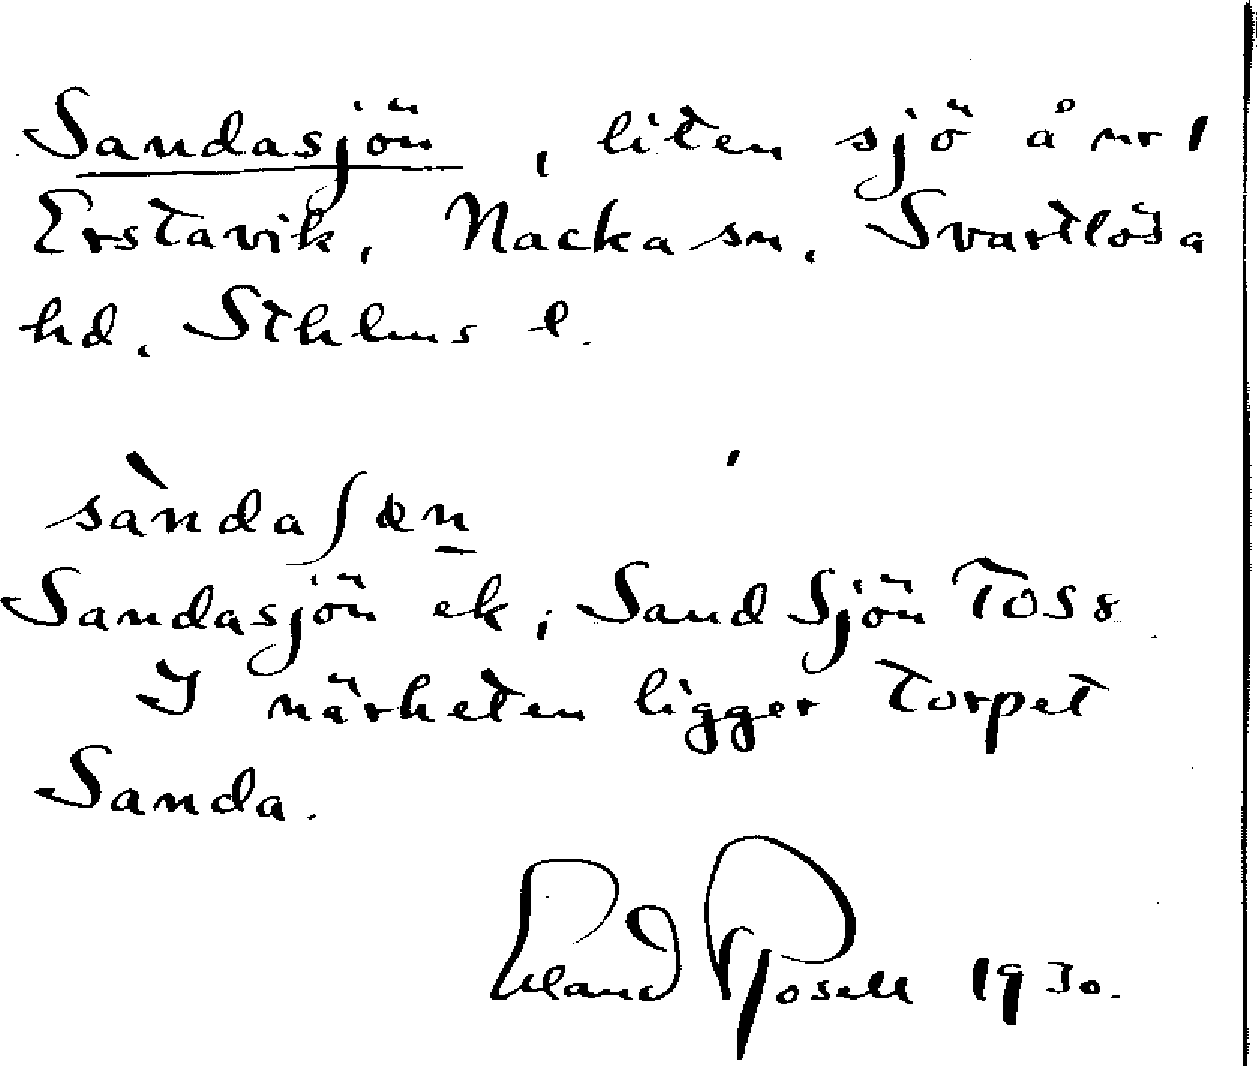 Sandasjön, liten sjö å nr 1
Erstavik, Nacka sn, Svartlösa
hd, Sthlms l.
sànda/ʃœn
Sandasjön ek; Sand Sjön
I närheten ligger torpet
Sanda.
Erland Rosell 1930.